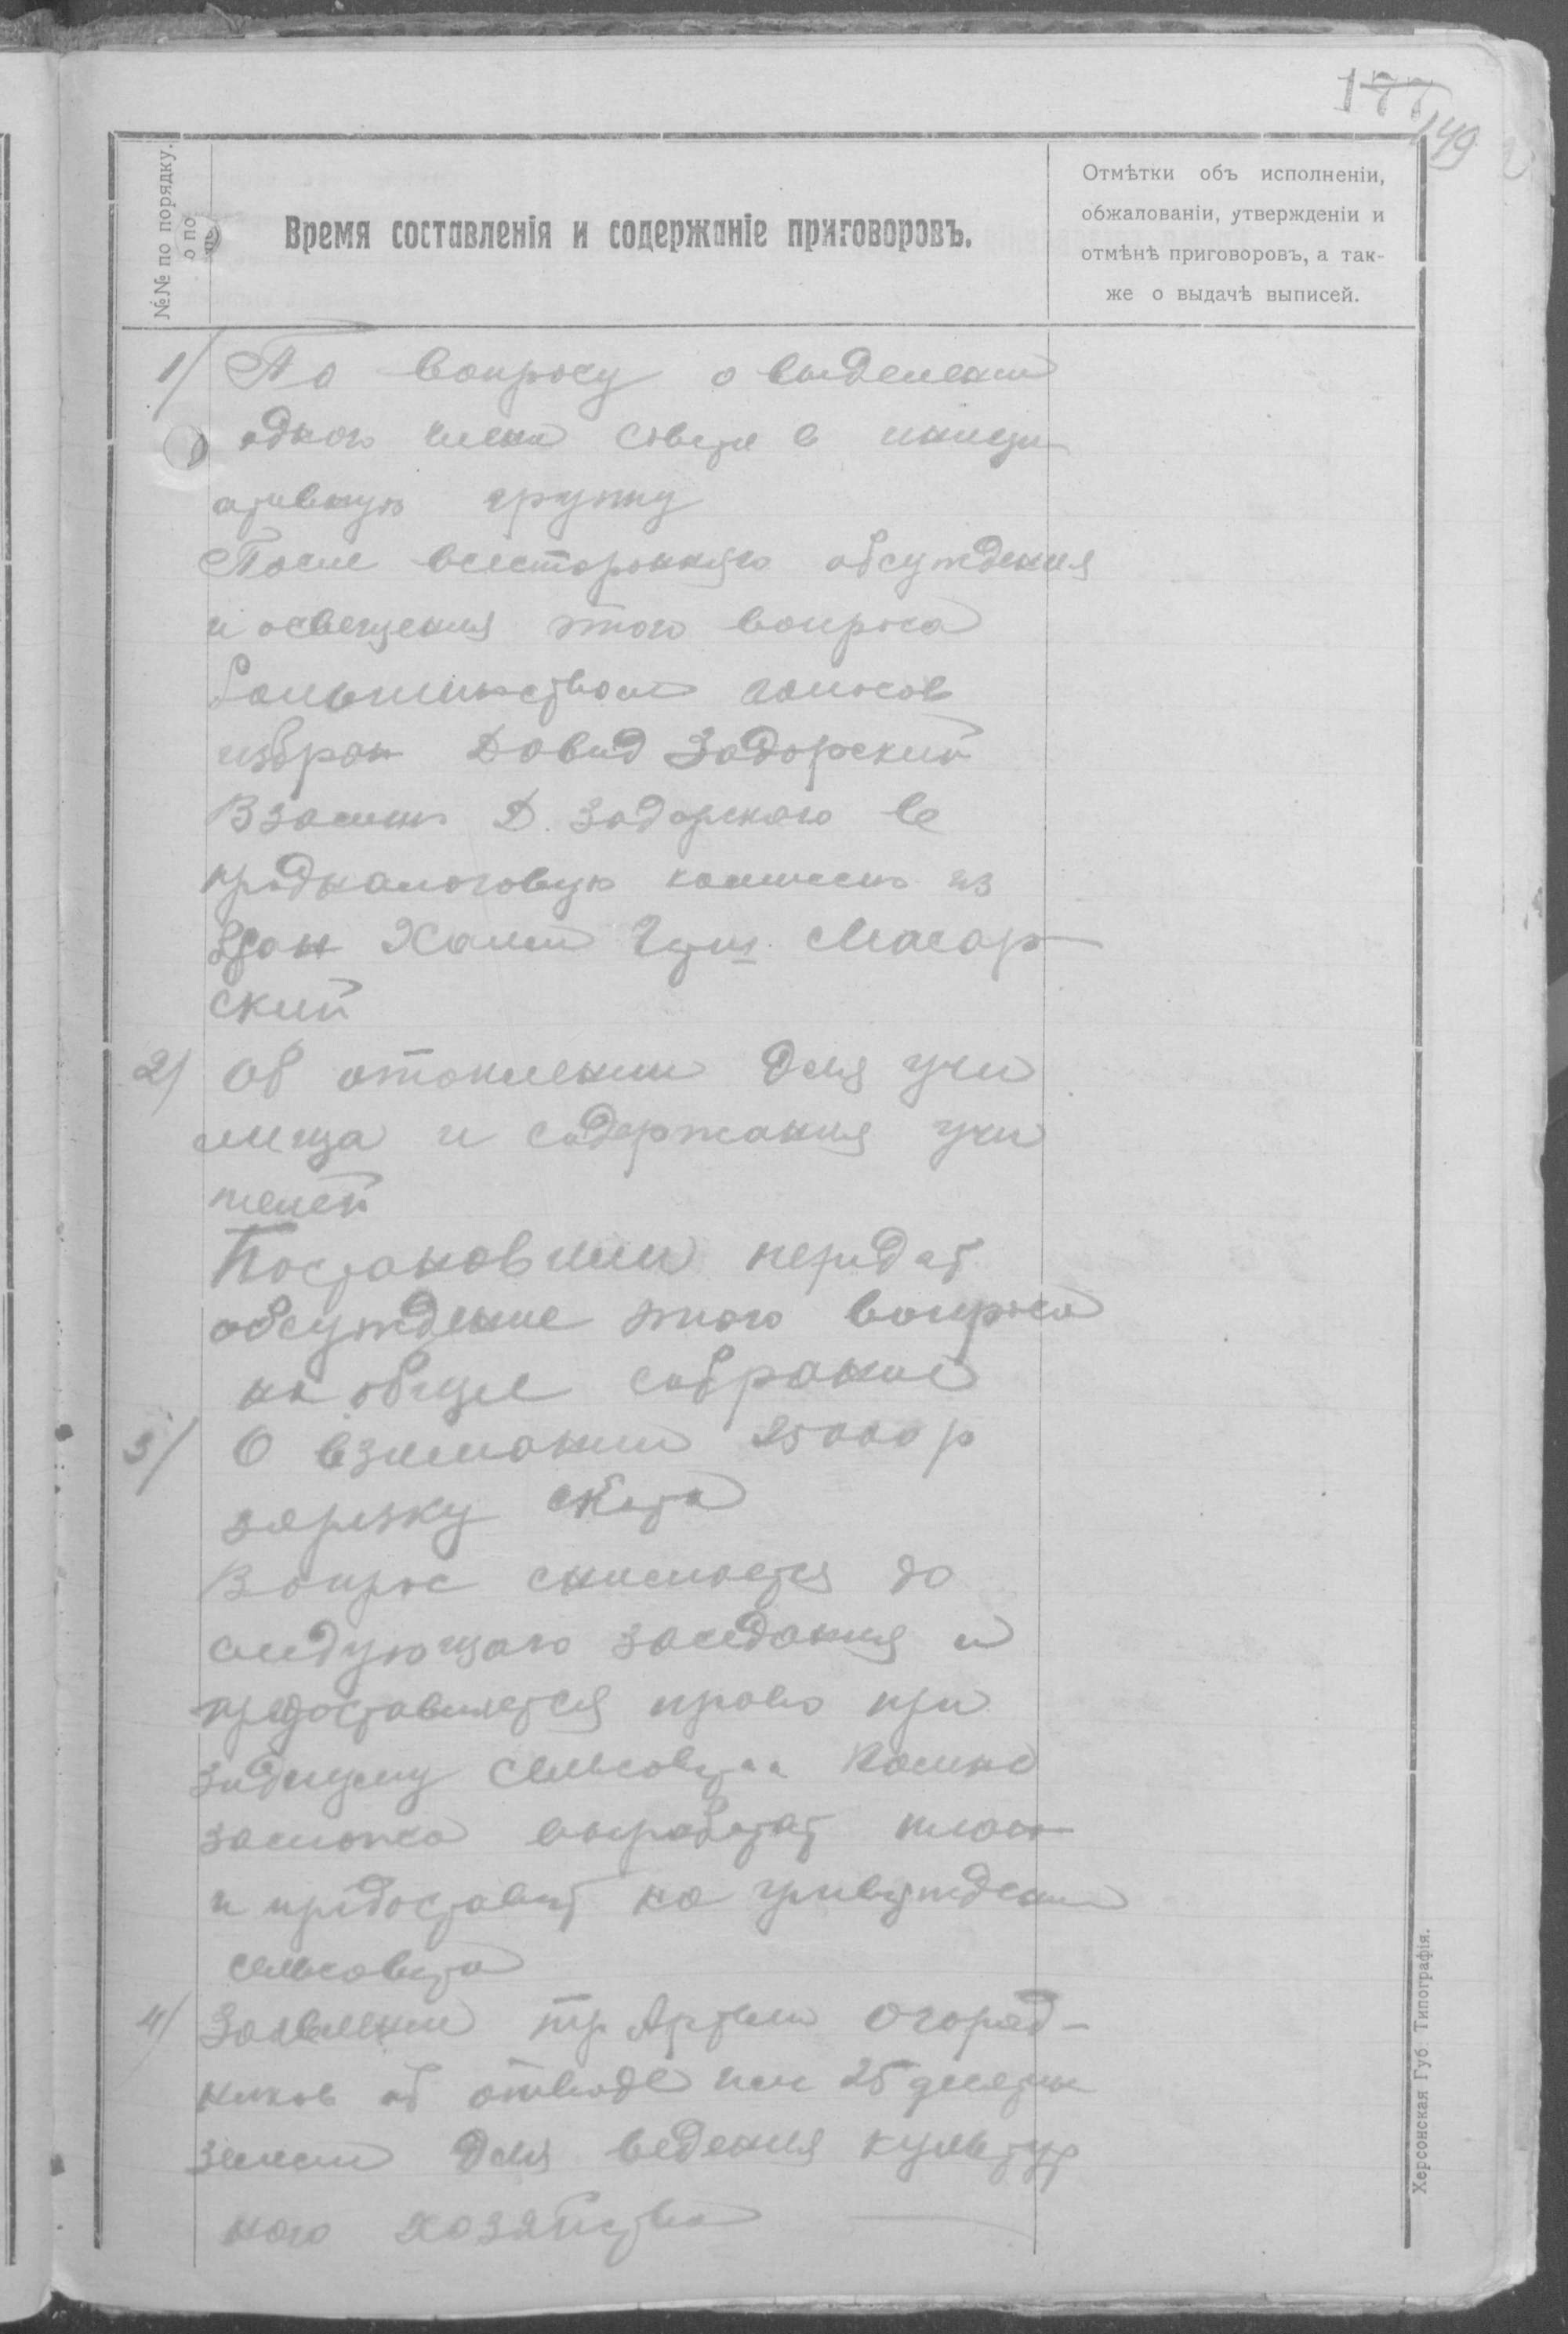 177
149
№№ по порядку.
Время составленія и содержаніе приговоровъ.
Отмѣтки объ исполненіи,
обжалованіи, утвержденіи и
отмѣнѣ приговоровъ, а так-
же о выдачѣ выписей.
1/ По вопросу о выделении
одного члена совета в иници
ативную группу
После всестороннего обсуждения
и освещения этого вопроса
большинством голосов
избран Давид Задорский
Взамен Д. Задорского в
продналоговую комиссию из
бран Хаим
ский
2/ Об отоплении для учи
лища и содержания учи
телей
Постановили передат
обсуждение этого вопроса
на общее собрание
3/ О взимании 25000 р
зарезку скота
Вопрос снимается до
следующаго заседания и
предоставляется право пре
зидиуму сельсовета Комнез
заможа выработат план
и предоставит на утверждение
сельсовета
4/ Заявлении тр Артели огород-
ников об отводе им 25 десятин
земли для ведения культур
ного хозяйства
Херсонская Губ. Типографія.